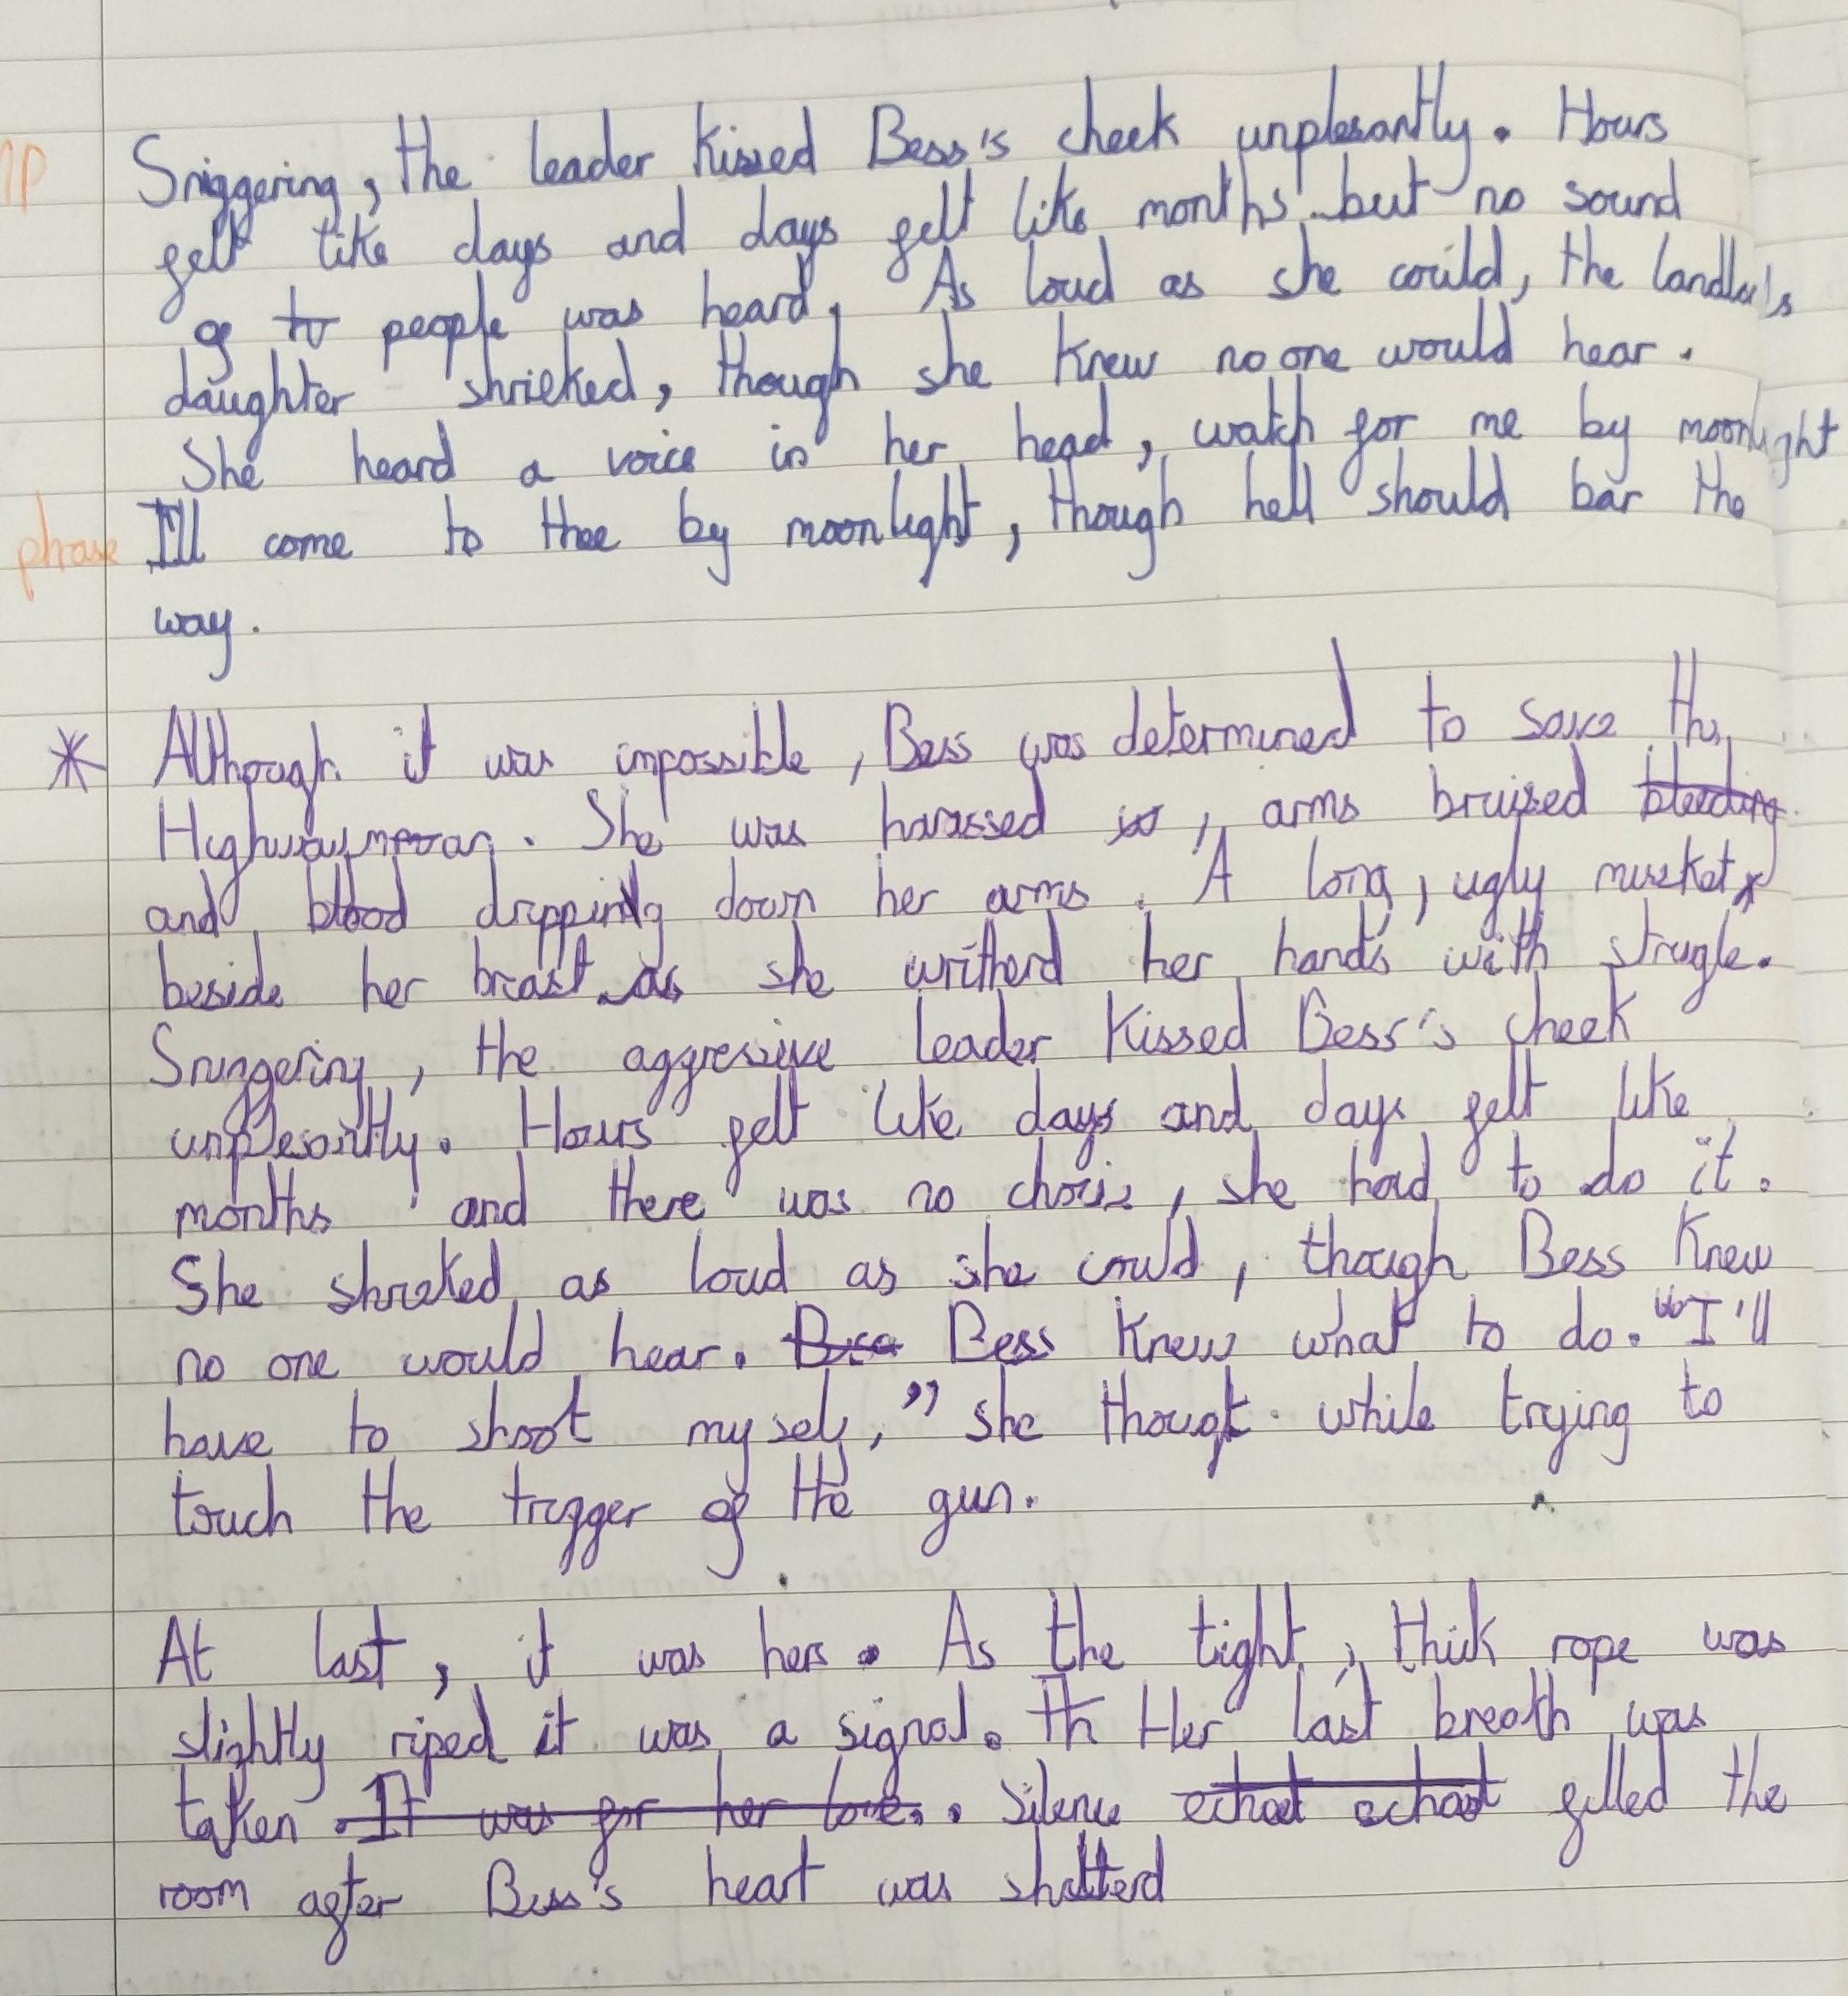 np
Sniggering, the leader kissed Bess's cheek unplesantly. Hours
felt like days and days felt like months but no sound
of to people was heard. As loud as she could, the
daughter shrieked, though she knew no one would hear.
She heard a voice in her head, watch for me by moonlight
phrase
I'll come to thee by moonlight, though hell should bar the
way.
* Although it was impossible, Bess was determined to save the
Highwayman. She was harassed, arms bruised bleeding
and blood dripping down her arms. A long, ugly musket
beside her breast as she writherd her hands with strugle.
Sniggering, the aggressive leader kissed Bess's cheek
unplesantly. Hours felt like days and days felt like
months and there was no choise, she had to do it.
She shrieked as loud as she could, though Bess knew
no one would hear. Bess knew what to do. "I'll
have to shoot my self," she thought while trying to
touch the trigger of the gun.
At last, it was hers. As the tight, thick rope was
slightly riped it was a signal. Th Her last breath was
taken. It was for her love. Silence filled the
room after Bess's heart was shatterd